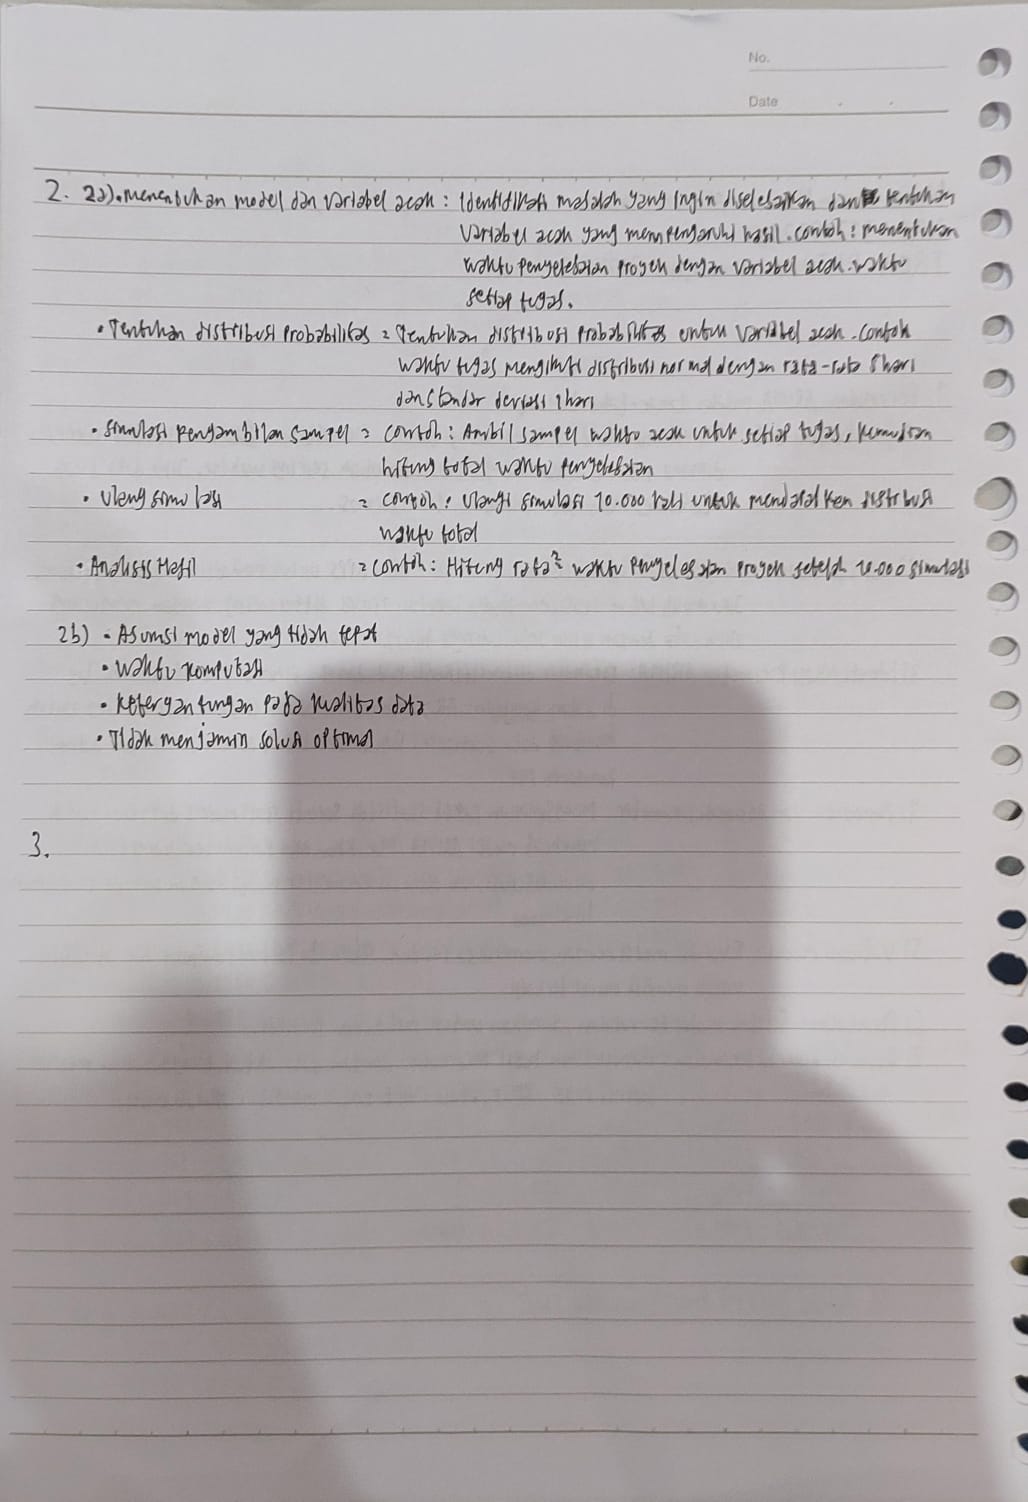 No.
Date
2. 2a). Menentukan model dan variabel acak : Identifikasi masalah yang ingin diselesaikan dan tentukan
variabel acak yang mempengaruhi hasil. contoh : menentukan
waktu penyelesaian proyek dengan variabel acak. waktu
setiap tugas.
• Tentukan distribusi probabilitas = Tentukan distribusi probabilitas untuk variabel acak. Contoh
waktu tugas mengikuti distribusi normal dengan rata-rata 5 hari
dan standar deviasi 1 hari
• Simulasi pengambilan sampel = contoh : Ambil sampel waktu acak untuk setiap tugas, kemudian
hitung total waktu penyelesaian
• Ulang simulasi = contoh : Ulangi simulasi 10.000 kali untuk mendapatkan distribusi
waktu total
• Analisis Hasil = contoh : Hitung rata² waktu penyelesaian proyek setelah 10.000 simulasi
2b) • Asumsi model yang tidak tepat
• Waktu komputasi
• Ketergantungan pada kualitas data
• Tidak menjamin solusi optimal
3.